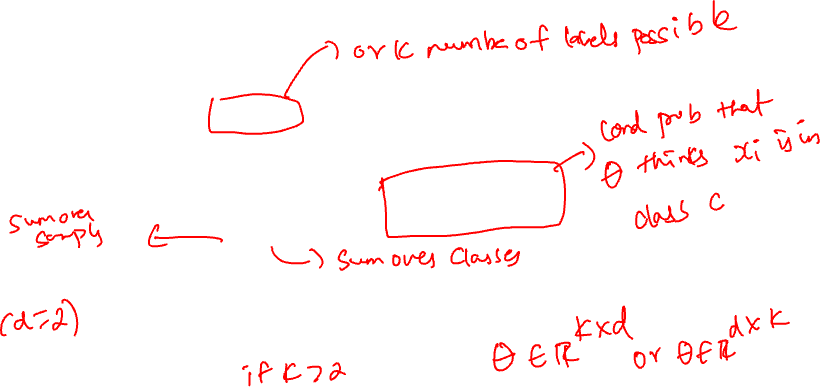 or K number of labels possible
Cond prob that
θ thinks xi is in
class C
Sum over
samples
Sum over Classes
(d=2)
if K>2
θ ∈ ℝ^{K×d} or θ ∈ ℝ^{d×K}